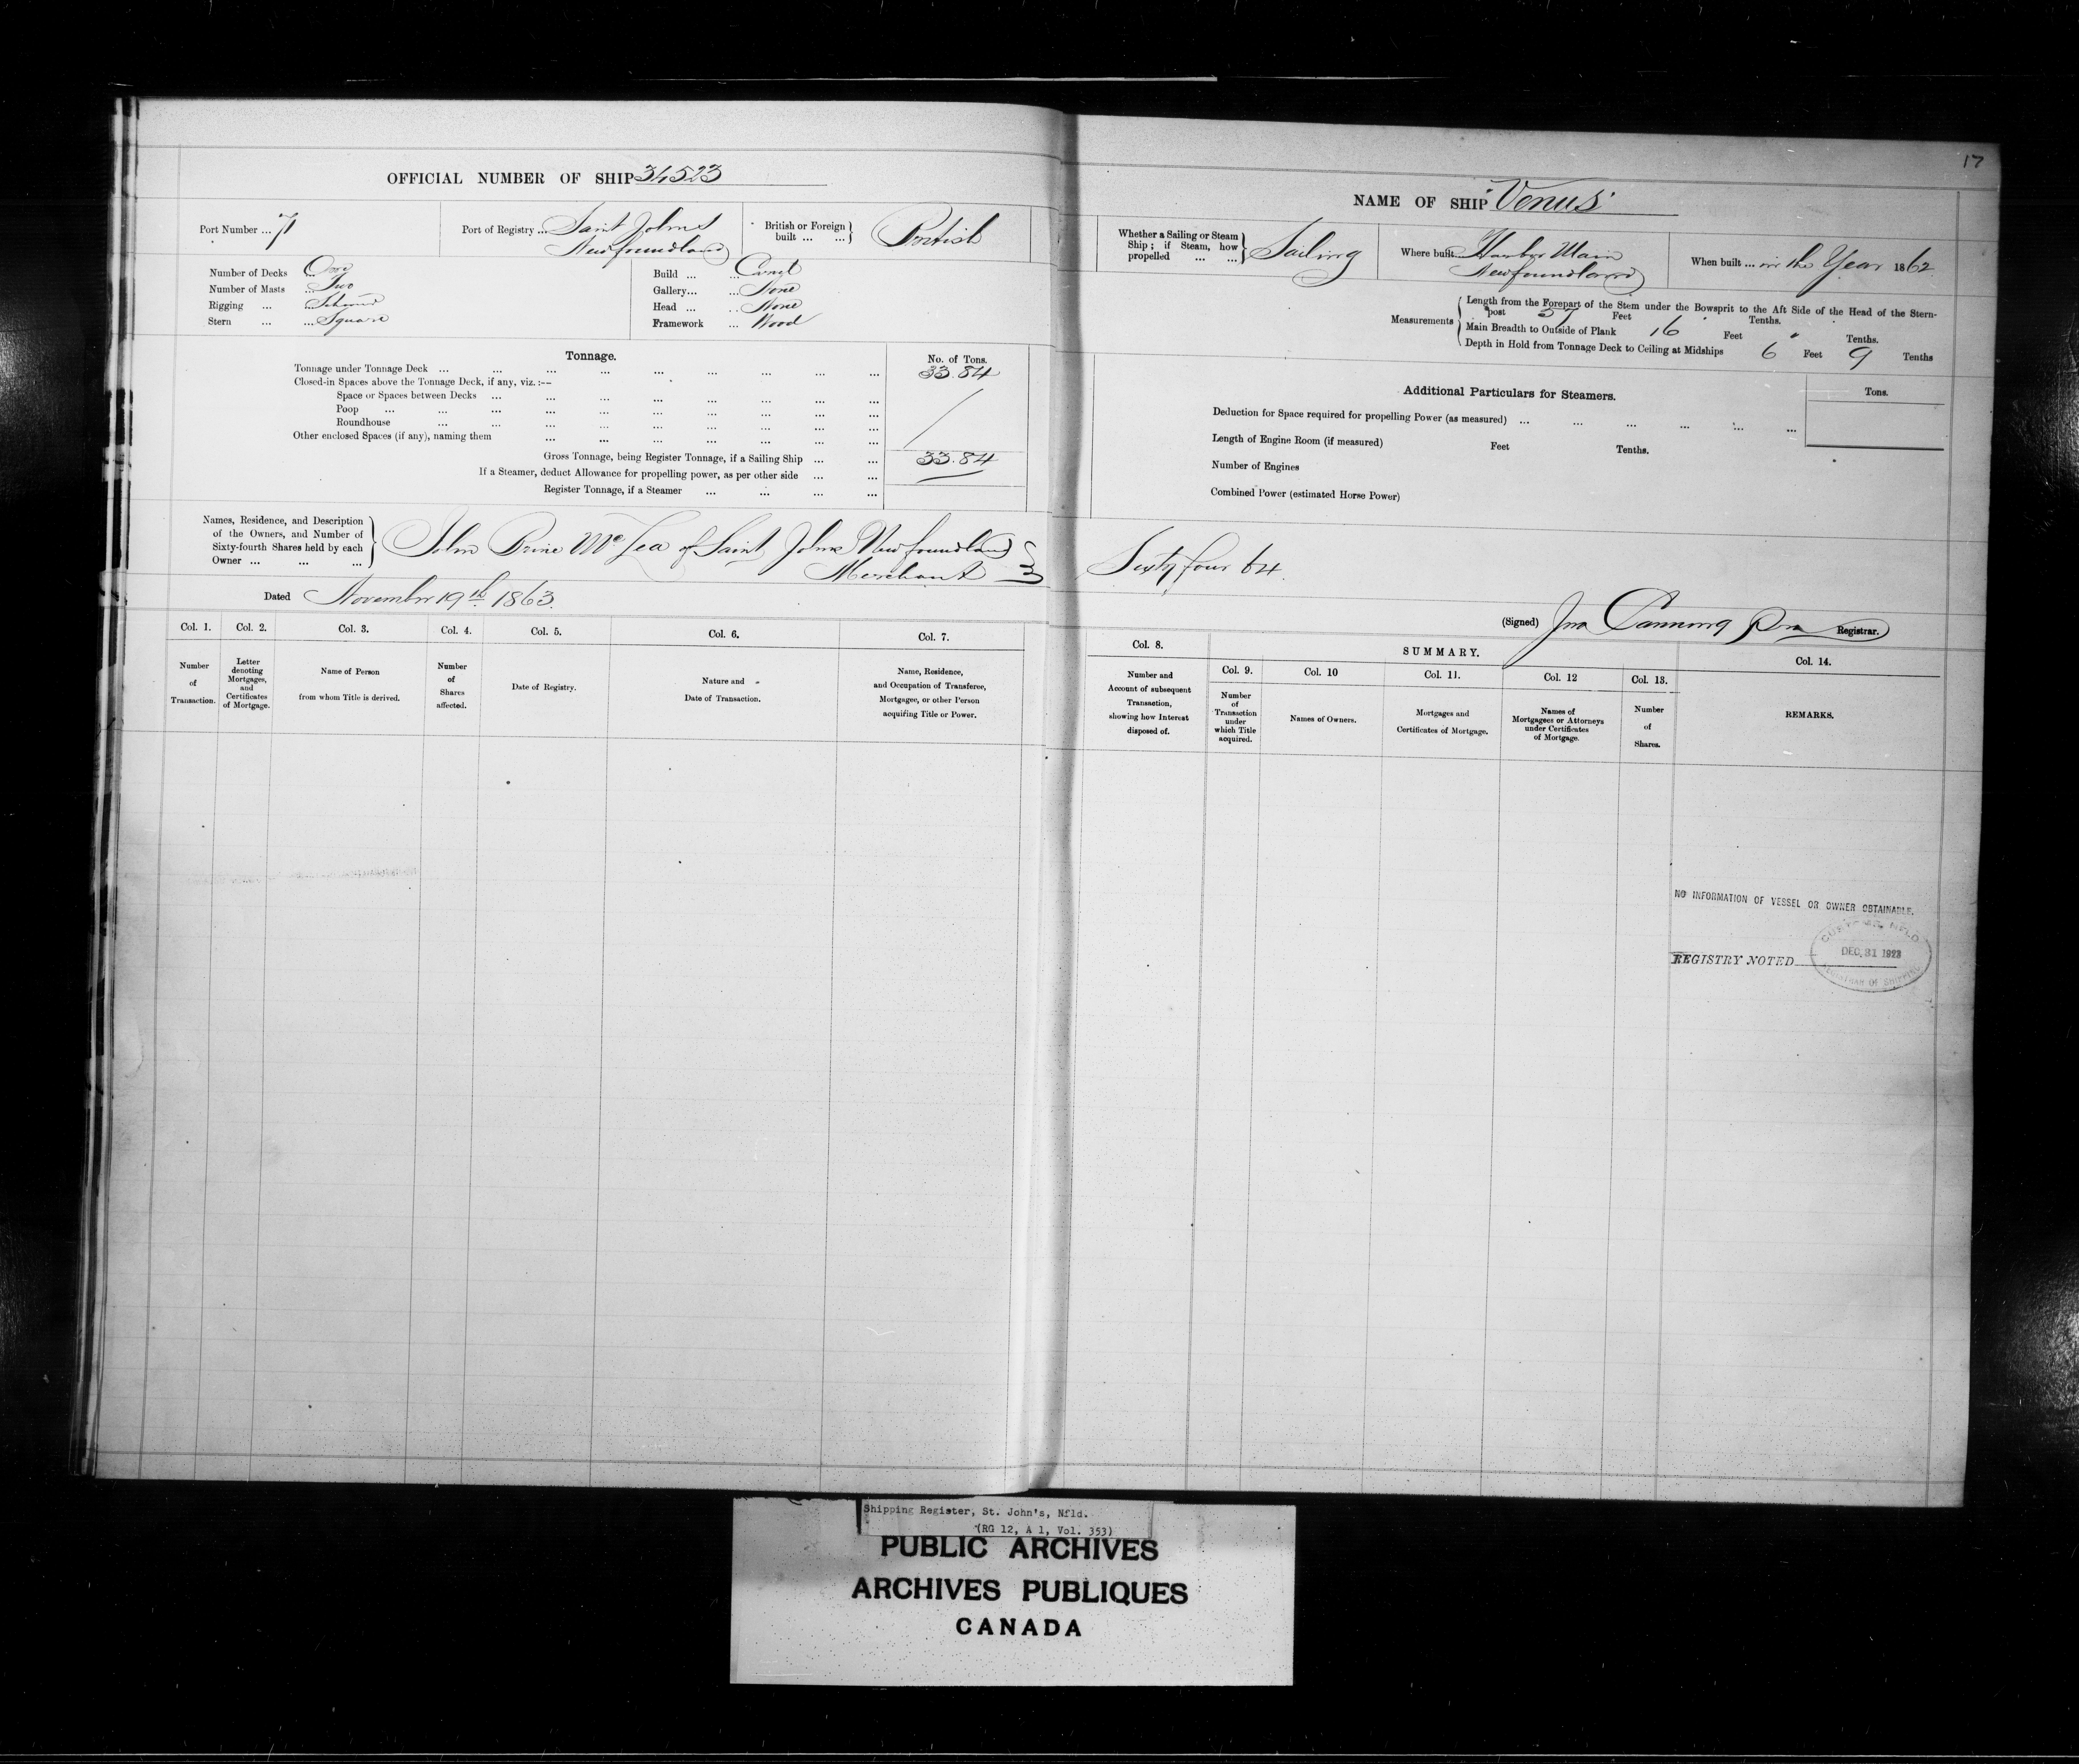 17
OFFICIAL NUMBER OF SHIP 34523
Port Number ... 71
Port of Registry ... Saint Johns
Newfoundland
British or Foreign built ... ... British
Number of Decks ... One
Number of Masts ... Two
Rigging ... ... Schooner
Stern ... ... Square
Build ... ... Carvel
Gallery... ... None
Head ... ... None
Framework ... Wood
Tonnage.
No. of Tons.
Tonnage under Tonnage Deck ... ... ... ... ... ... ... ... 33.84
Closed-in Spaces above the Tonnage Deck, if any, viz. :—
Space or Spaces between Decks ... ... ... ... ... ... ... ...
Poop ... ... ... ... ... ... ... ... ... ...
Roundhouse ... ... ... ... ... ... ... ... ...
Other enclosed Spaces (if any), naming them ... ... ... ... ... ... ...
Gross Tonnage, being Register Tonnage, if a Sailing Ship ... ... 33.84
If a Steamer, deduct Allowance for propelling power, as per other side ... ...
Register Tonnage, if a Steamer ... ... ... ...
Names, Residence, and Description
of the Owners, and Number of
Sixty-fourth Shares held by each
Owner ... ... ...
John Mc Lea of Saint Johns Newfoundland
Merchant
Dated November 19th 1863.
Col. 1. Col. 2. Col. 3. Col. 4. Col. 5. Col. 6. Col. 7.
Number of Transaction.
Letter denoting Mortgages, and Certificates of Mortgage.
Name of Person from whom Title is derived.
Number of Shares affected.
Date of Registry.
Nature and Date of Transaction.
Name, Residence, and Occupation of Transferee, Mortgagee, or other Person acquiring Title or Power.
NAME OF SHIP "Venus"
Whether a Sailing or Steam Ship; if Steam, how propelled ... ... Sailing
Where built Harbor Main
Newfoundland
When built ... in the Year 1862
Measurements
Length from the Forepart of the Stem under the Bowsprit to the Aft Side of the Head of the Stern-
post 57 Feet Tenths.
Main Breadth to Outside of Plank 16 Feet " Tenths.
Depth in Hold from Tonnage Deck to Ceiling at Midships 6 Feet 9 Tenths
Additional Particulars for Steamers.
Tons.
Deduction for Space required for propelling Power (as measured) ... ... ... ... ... ...
Length of Engine Room (if measured) Feet Tenths.
Number of Engines
Combined Power (estimated Horse Power)
Sixty four 64
(Signed) Jno Canning Registrar.
Col. 8. SUMMARY. Col. 14.
Col. 9. Col. 10 Col. 11. Col. 12 Col. 13.
Number and Account of subsequent Transaction, showing how Interest disposed of.
Number of Transaction under which Title acquired.
Names of Owners.
Mortgages and Certificates of Mortgage.
Names of Mortgagees or Attorneys under Certificates of Mortgage.
Number of Shares.
REMARKS.
NO INFORMATION OF VESSEL OR OWNER OBTAINABLE.
REGISTRY NOTED
NFLD
DEC. 31 1923
REGISTRAR OF SHIPPING
Shipping Register, St. John's, Nfld.
(RG 12, A 1, Vol. 353)
PUBLIC ARCHIVES
ARCHIVES PUBLIQUES
CANADA